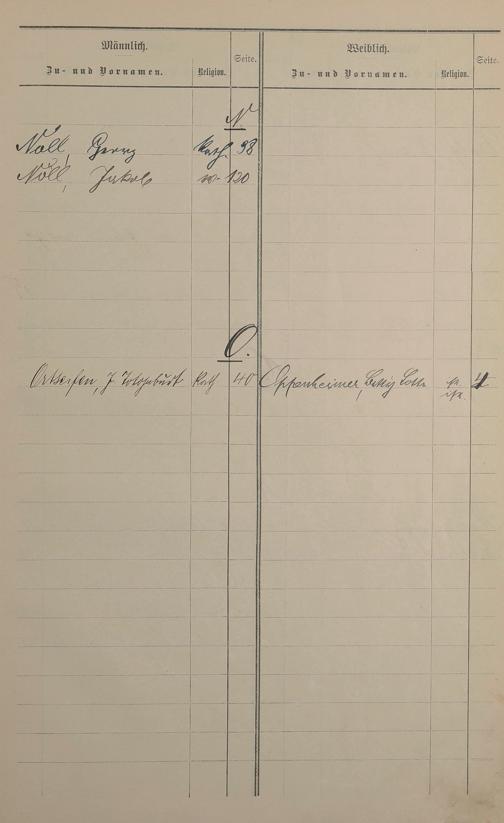 Männlich.
Zu- und Vornamen.
Religion.
Seite.
Weiblich.
Zu- und Vornamen.
Religion.
Seite.
N.
Nöll, Georg Kath. 98
Nöll, Jakob 120
O.
Ortseifen, J. Totgeburt Kath 40
Oppenheimer, Betty Lotte isr. 4